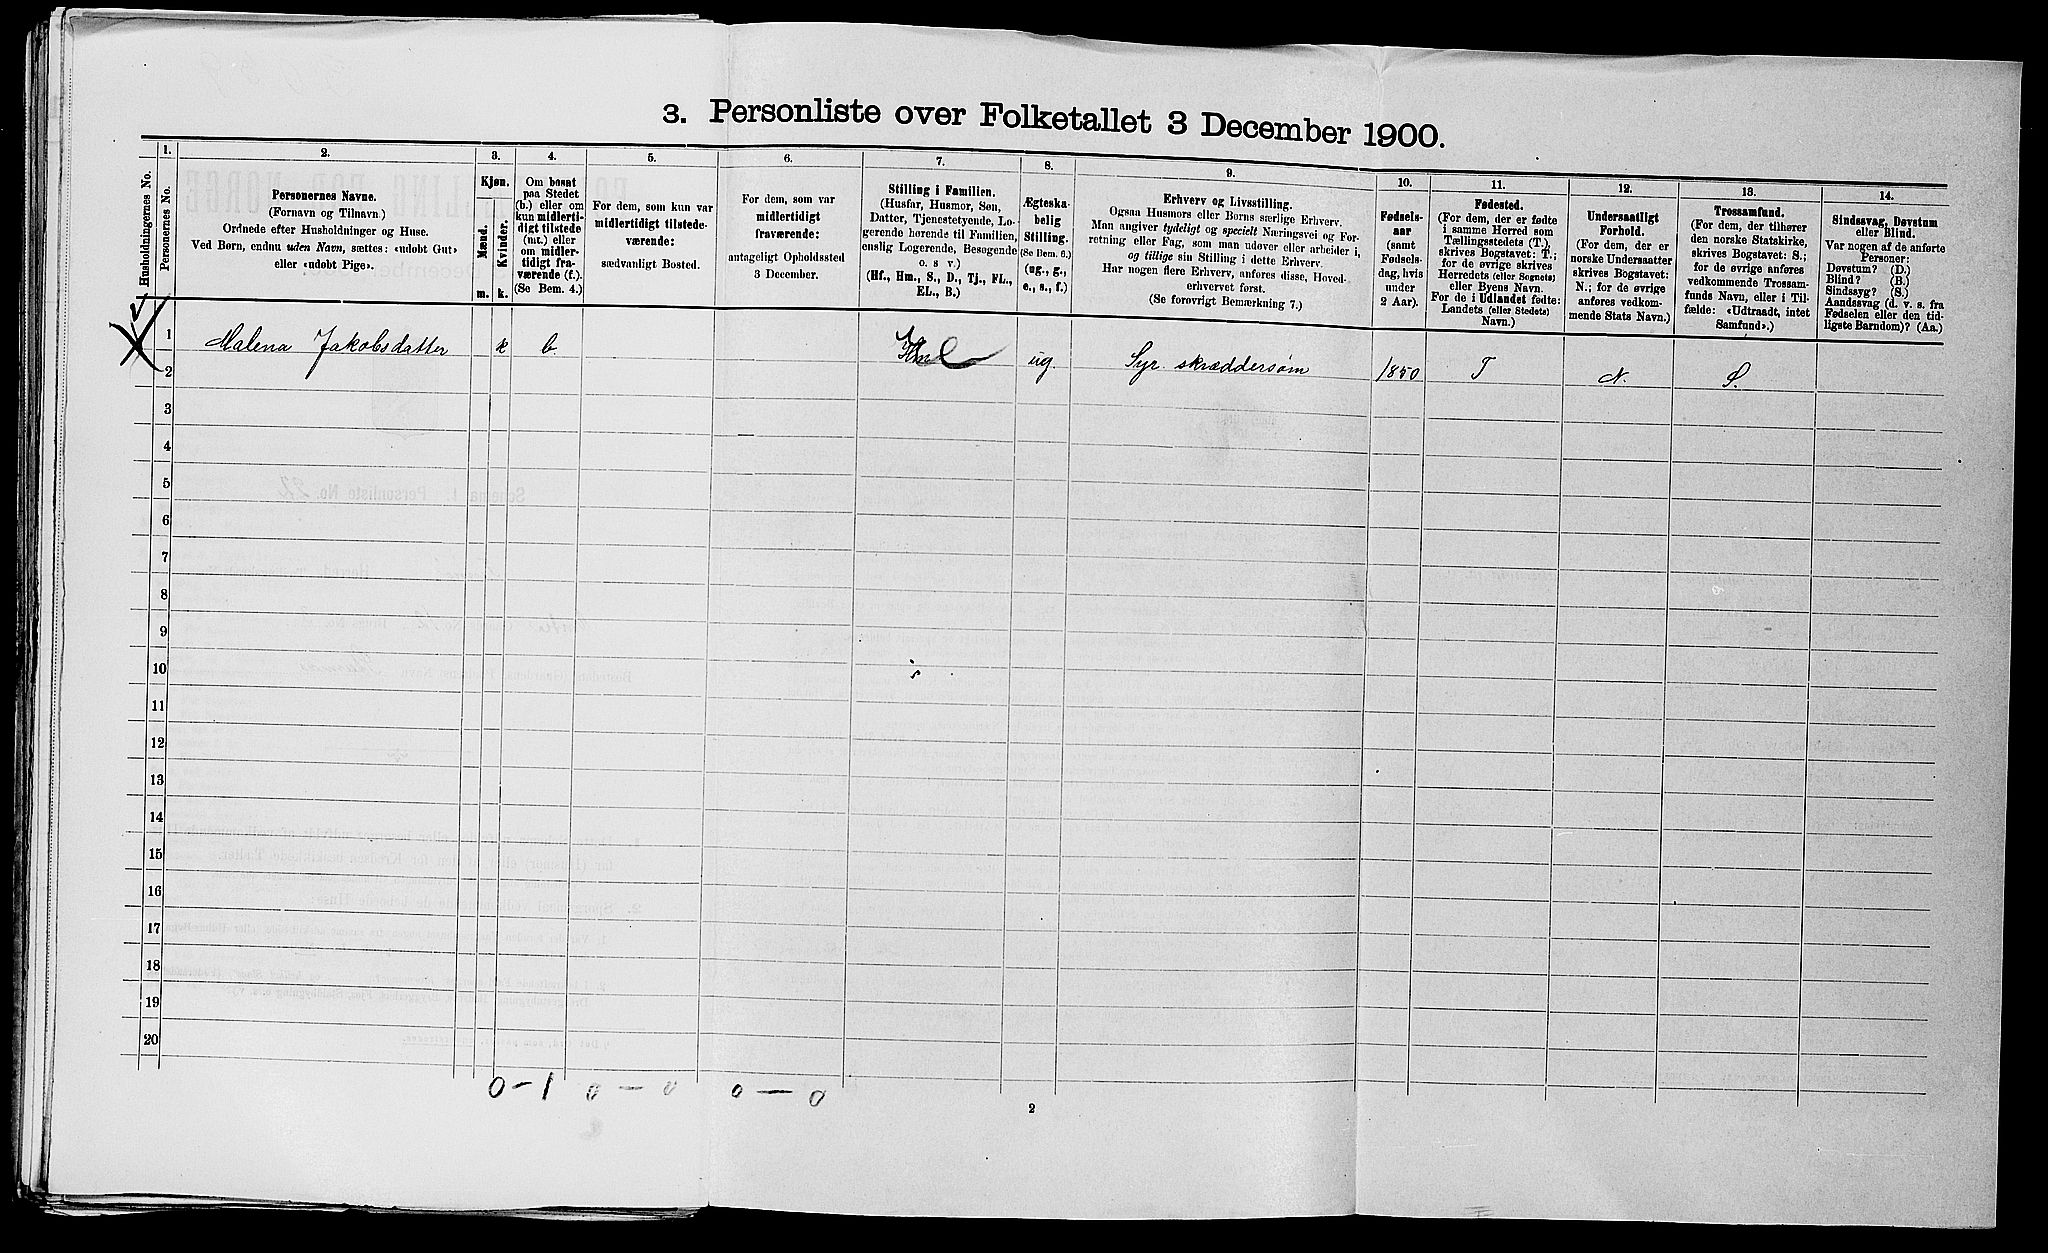 3. Personliste over Folketallet 3 December 1900.
Husholdningernes No.
1.
Personernes No.
2.
Personernes Navne.
(Fornavn og Tilnavn.)
Ordnede efter Husholdninger og Huse.
Ved Børn, endnu uden Navn, sættes: «udøbt Gut»
eller «udøbt Pige».
3.
Kjøn.
Mænd.
Kvinder.
m.
k.
4.
Om bosat
paa Stedet
(b.) eller om
kun midlerti-
digt tilstede
(mt.) eller
om midler-
tidigt fra-
værende (f.).
(Se Bem. 4.)
5.
For dem, som kun var
midlertidigt tilstede-
værende:
sædvanligt Bosted.
6.
For dem, som var
midlertidigt
fraværende:
antageligt Opholdssted
3 December.
7.
Stilling i Familien.
(Husfar, Husmor, Søn,
Datter, Tjenestetyende, Lo-
gerende hørende til Familien,
enslig Logerende, Besøgende
o. s. v.)
(Hf., Hm., S., D., Tj., FL.,
EL., B.)
8.
Ægteska-
belig
Stilling.
(Se Bem. 6.)
(ug., g.,
e., s., f.)
9.
Erhverv og Livsstilling.
Ogsaa Husmors eller Børns særlige Erhverv.
Man angiver tydeligt og specielt Næringsvei og For-
retning eller Fag, som man udøver eller arbeider i,
og tillige sin Stilling i dette Erhverv.
Har nogen flere Erhverv, anføres disse, Hoved-
erhvervet først.
(Se forøvrigt Bemærkning 7.)
10.
Fødsels-
aar
(samt
Fødsels-
dag, hvis
under
2 Aar).
11.
Fødested.
(For dem, der er fødte
i samme Herred som
Tællingsstedets (T.),
skrives Bogstavet: T.;
for de øvrige skrives
Herredets (eller Sognets)
eller Byens Navn.
For de i Udlandet fødte:
Landets (eller Stedets)
Navn.)
12.
Undersaatligt
Forhold.
(For dem, der er
norske Undersaatter
skrives Bogstavet:
N.; for de øvrige
anføres vedkom-
mende Stats Navn.)
13.
Trossamfund.
(For dem, der tilhører
den norske Statskirke,
skrives Bogstavet: S.;
for de øvrige anføres
vedkommende Trossam-
funds Navn, eller i Til-
fælde: «Udtraadt, intet
Samfund».)
14.
Sindssvag, Døvstum
eller Blind.
Var nogen af de anførte
Personer:
Døvstum? (D.)
Blind? (B.)
Sindssyg? (S.)
Aandssvag (d. v. s. fra
Fødselen eller den tid-
ligste Barndom)? (Aa.)
1 Malena Jakobsdatter k b. ug. Syr. skræddersøm 1850 T N. S.
2
3
4
5
6
7
8
9
10
11
12
13
14
15
16
17
18
19
20
0-1 0-0 0-0
2